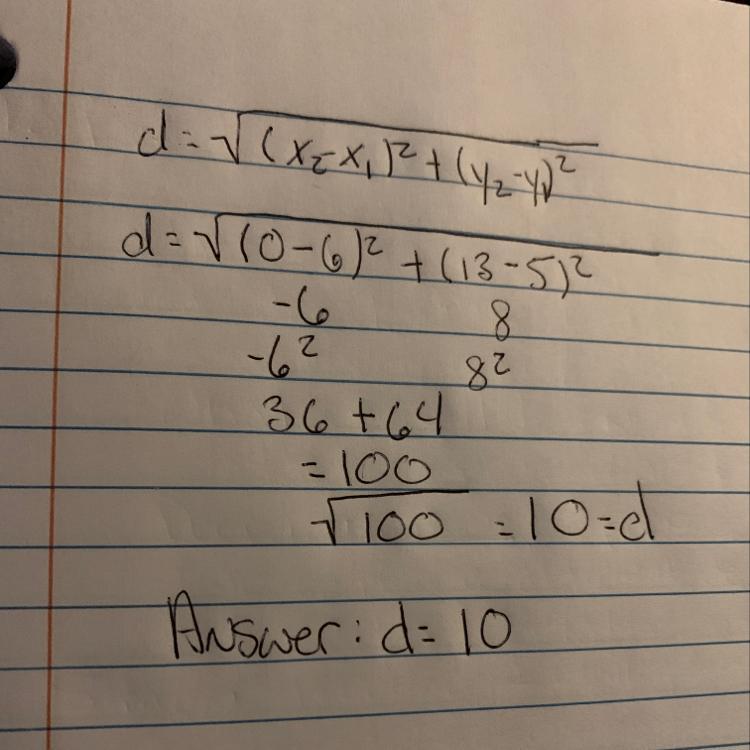 d = √(x₂-x₁)² + (y₂-y₁)²
d = √(0-6)² + (13-5)²
-6 8
-6² 8²
36 + 64
= 100
√100 = 10 = d
Answer: d = 10